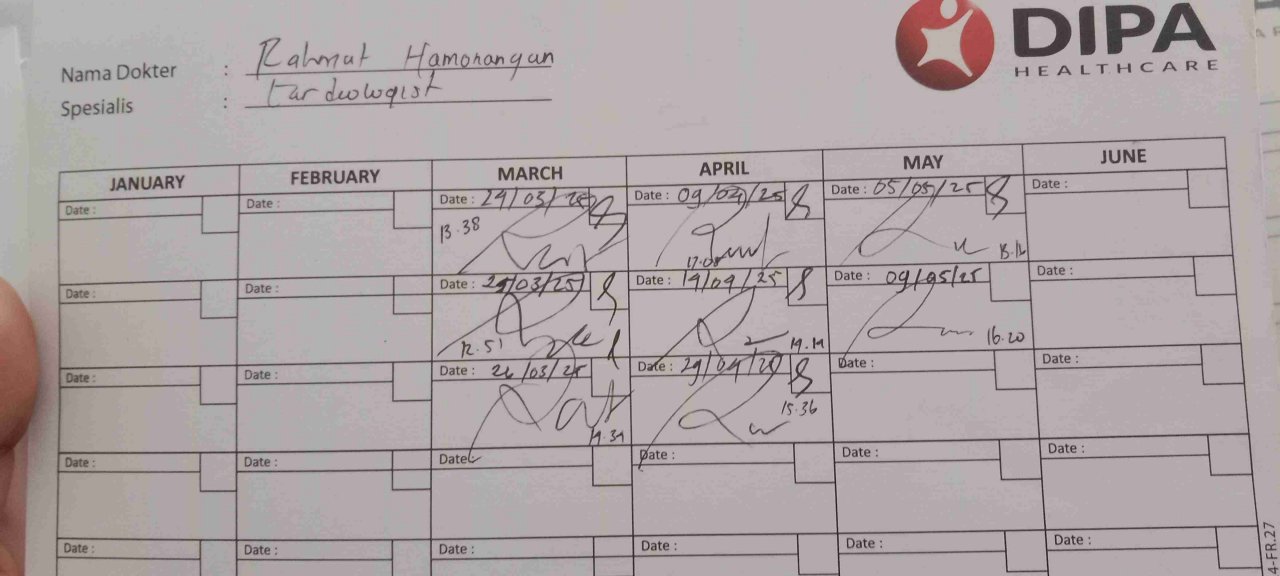 DIPA
HEALTHCARE
Nama Dokter : Rahmat Hamonangan
Spesialis : Cardeologist
JANUARY FEBRUARY MARCH APRIL MAY JUNE
Date : Date : Date : 24/03/25 Date : 09/04/25 Date : 05/05/25 Date :
13.38 17.08 13.16
Date : Date : Date : 25/03/25 Date : 14/04/25 Date : 09/05/25 Date :
12.51 14.14 16.20
Date : Date : Date : 26/03/25 Date : 29/04/25 Date : Date :
14.34 15.36
Date : Date : Date : Date : Date : Date :
Date : Date : Date : Date : Date : Date :
4-FR.27